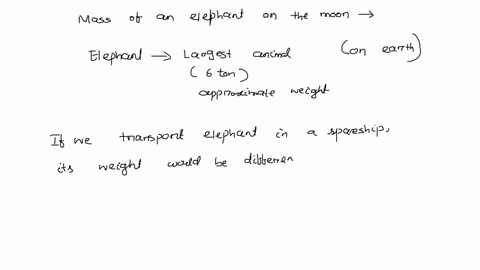 Mass of an elephant on the moon →
Elephant → Largest animal (on earth)
(6 ton)
approximate weight
If we transport elephant in a spaceship,
its weight would be differen